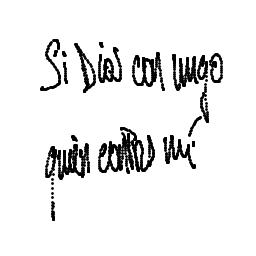 Si Dios con migo
quien contra mi